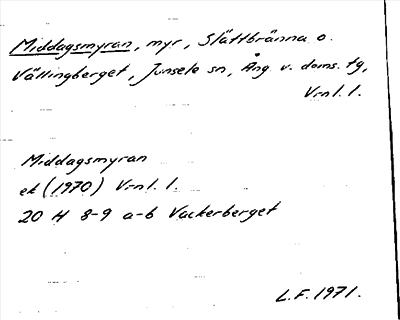 Middagsmyran, myr, Slättbränna o.
Vällingberget, Junsele sn, Ång. v. doms. tg,
Vrnl. l.
Middagsmyran
ek (1970) Vrnl. l.
20 H 8-9 a-b Vackerberget
L.F. 1971.